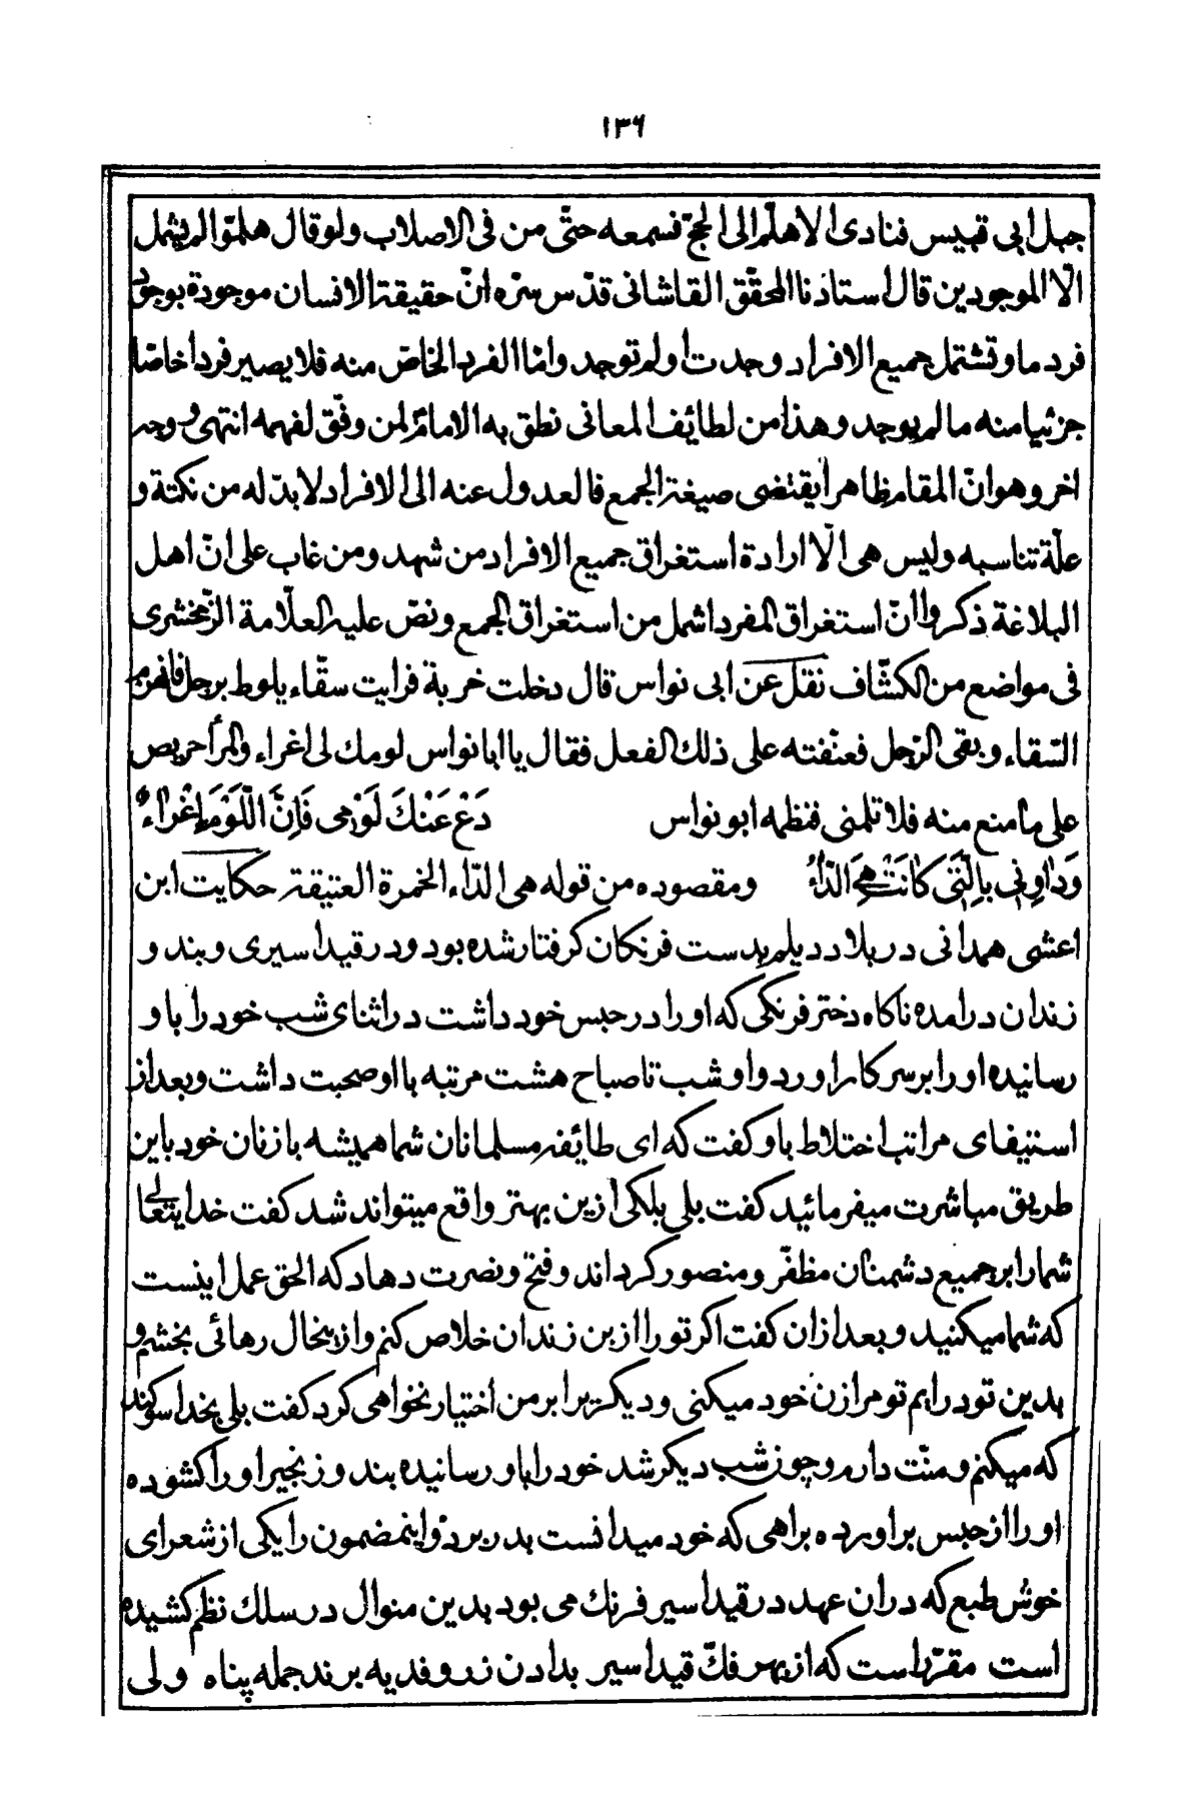 ١٣٦
جبل ابی قبیس فنادی الا هلمّ الی الحجّ فسمعه حتّی من فی الاصلاب ولو قال هلمّوا لم یشمل
الّا الموجودین قال استاذنا المحقّق القاشانی قدّس سرّه انّ حقیقة الانسان موجودة بوجود
فرد ما و تشتمل جمیع الافراد وجدت او لم توجد وامّا الفرد الخاصّ منه فلا یصیر فردا خاصّا
جزئیا منه ما لم یوجد و هذا من لطائف المعانی نطق به الامام لمن وفّق لفهمه انتهی و وجه
اخر وهو انّ المقام ظاهرا یقتضی صیغة الجمع فالعدول عنه الی الافراد لا بدّ له من نکتة و
علّة تناسبه ولیس هی الّا ارادة استغراق جمیع الافراد من شهد و من غاب علی انّ اهل
البلاغة ذکروا انّ استغراق المفرد اشمل من استغراق الجمع ونصّ علیه العلّامة الزّمخشری
فی مواضع من الکشّاف نقل عن ابی نواس قال دخلت خربة فرایت سقّاء یلوط برجل فانهزم
السّقاء و بقی الرّجل فعنّفته علی ذلك الفعل فقال یا ابا نواس لومك لی اغراء والمرأ حریص
علی ما منع منه فلا تلمنی فنظمه ابو نواس دَعْ عَنْكَ لَوْمی فَاِنَّ اللَّوْمَ اِغْراءٌ
وَداوِنی بِالَّتی کانَتْ هِیَ الدّاءُ و مقصوده من قوله هی الدّاء الخمرة العتیقة حکایت ابن
اعشی همدانی در بلاد دیلم بدست فرنکان کرفتار شده بود ودر قید اسیری و بند و
زندان درامده ناکاه دختر فرنکی که او را در حبس خود داشت در اثنای شب خود را با و
رسانیده او را بر سر کار اورد و او شب تا صباح هشت مرتبه با او صحبت داشت و بعد از
استیفای مراتب اختلاط باو کفت که ای طائفهٔ مسلمانان شما همیشه با زنان خود باین
طریق مباشرت میفرمائید کفت بلی بلکی ازین بهتر واقع میتواند شد کفت خدایتعالی
شما را بر جمیع دشمنان مظفّر و منصور کرداند و فتح و نصرت دهاد که الحق عمل اینست
که شما میکنید و بعد از ان کفت اکر تو را از ین زندان خلاص کنم و از ینحال رهائی بخشم و
بدین تو درایم تو مرا زن خود میکنی و دیکر برابر من اختیار نخواهی کرد کفت بلی بخدا سوکند
که میکنم و منّت دارم و چون شب دیکر شد خود را باو رسانیده بند و زنجیر او را کشوده
او را از حبس براورده براهی که خود میدانست بدر برد و اینمضمون را یکی از شعرای
خوش طبع که دران عهد در قید اسیر فرنك می بود بدین منوال در سلك نظم کشیده
است مقرّر است که از بهر فكّ قید اسیر بدادن زر و فدیه برند جمله پناه ولی